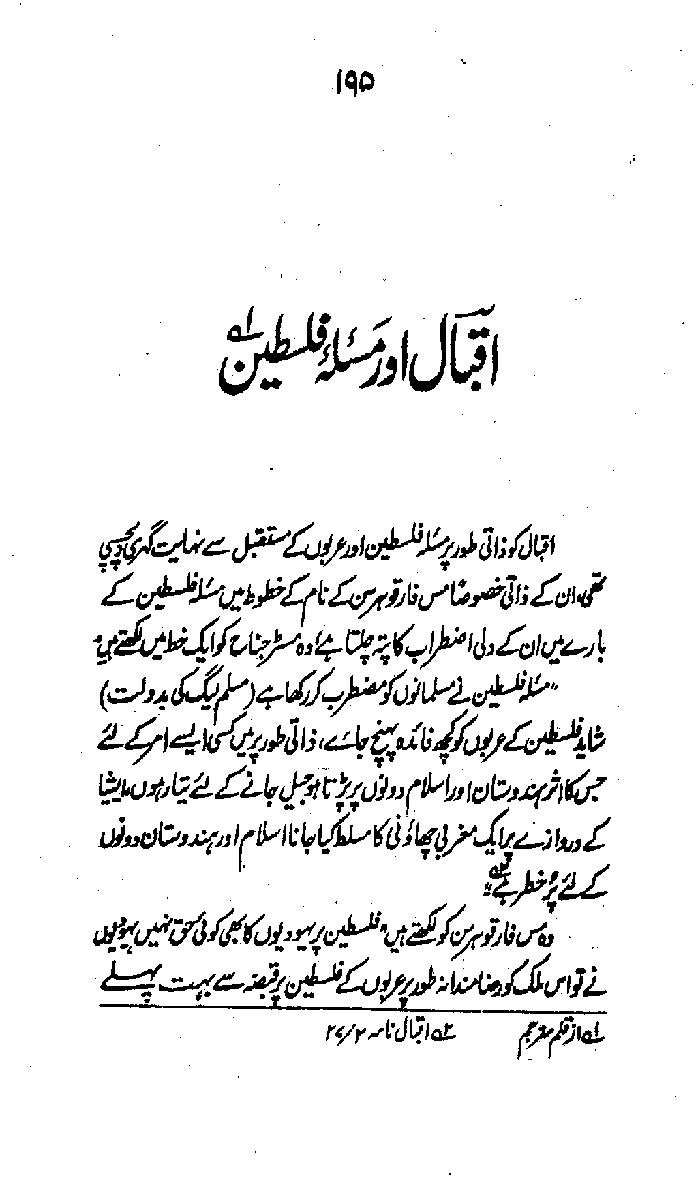 ۱۹۵
اقبال اور مسئلہ فلسطین ۱ہ
اقبال کو ذاتی طور پر مسئلہ فلسطین اور عربوں کے مستقبل سے نہایت گہری دلچسپی
تھی، ان کے ذاتی خصوصًا مس فارقوہرسن کے نام کے خطوط میں مسئلہ فلسطین کے
بارے میں ان کے دلی اضطراب کا پتہ چلتا ہے، وہ مسٹر جناح کو ایک خط میں لکھتے ہیں،
"مسئلہ فلسطین نے مسلمانوں کو مضطرب کر رکھا ہے (مسلم لیگ کی بدولت)
شاید فلسطین کے عربوں کو کچھ فائدہ پہنچ جائے، ذاتی طور پر میں کسی ایسے امر کے لئے
جس کا اثر ہندوستان اور اسلام دونوں پر پڑتا ہو جیل جانے کے لئے تیار ہوں، ایشیا
کے دروازے پر ایک مغربی چھاؤنی کا مسلط کیا جانا اسلام اور ہندوستان دونوں
کے لئے پُر خطر ہے ۲ہ"
وہ مس فارقوہرسن کو لکھتے ہیں "فلسطین پر یہودیوں کا بھی کوئی حق نہیں یہودیوں
نے تو اس ملک کو رضامندانہ طور پر عربوں کے فلسطین پر قبضہ سے بہت پہلے
۱ہ از قلم مترجم ۲ہ اقبال نامہ ۲۷/۲